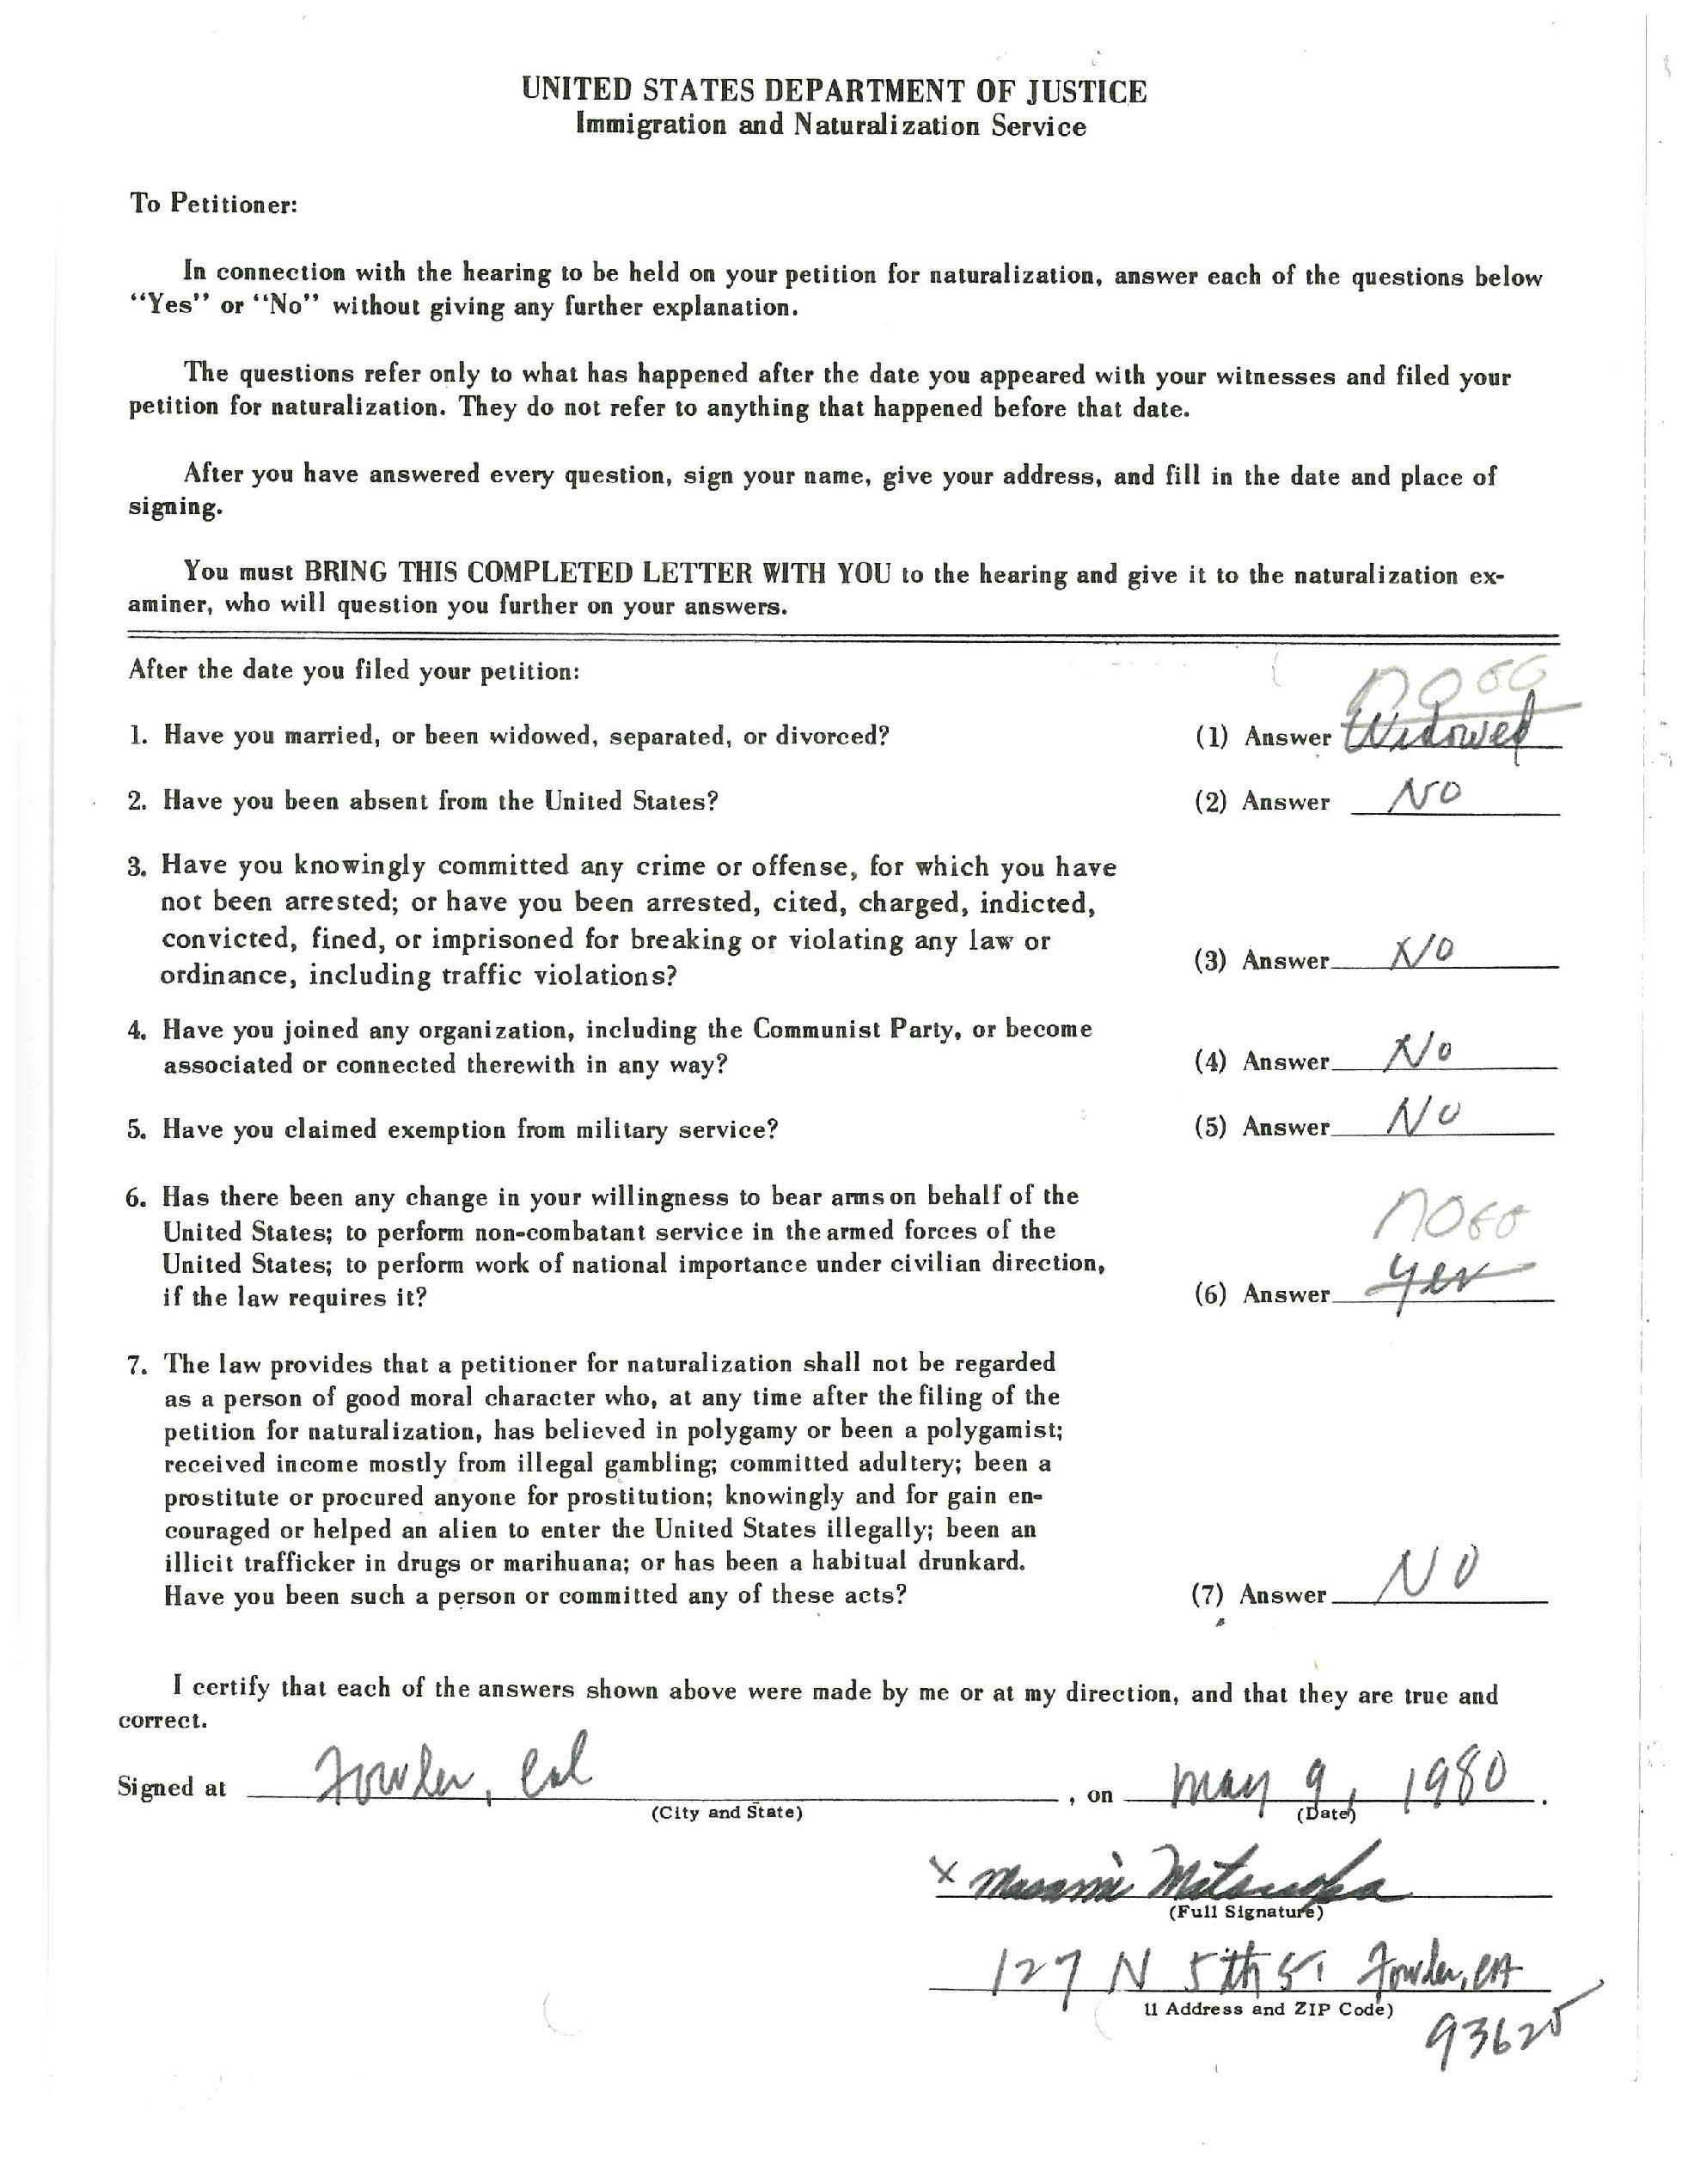 UNITED STATES DEPARTMENT OF JUSTICE
Immigration and Naturalization Service
To Petitioner:
In connection with the hearing to be held on your petition for naturalization, answer each of the questions below
"Yes" or "No" without giving any further explanation.
The questions refer only to what has happened after the date you appeared with your witnesses and filed your
petition for naturalization. They do not refer to anything that happened before that date.
After you have answered every question, sign your name, give your address, and fill in the date and place of
signing.
You must BRING THIS COMPLETED LETTER WITH YOU to the hearing and give it to the naturalization ex-
aminer, who will question you further on your answers.
After the date you filed your petition:
no
1. Have you married, or been widowed, separated, or divorced? (1) Answer Widowed
2. Have you been absent from the United States? (2) Answer NO
3. Have you knowingly committed any crime or offense, for which you have
not been arrested; or have you been arrested, cited, charged, indicted,
convicted, fined, or imprisoned for breaking or violating any law or
ordinance, including traffic violations? (3) Answer NO
4. Have you joined any organization, including the Communist Party, or become
associated or connected therewith in any way? (4) Answer No
5. Have you claimed exemption from military service? (5) Answer NO
6. Has there been any change in your willingness to bear arms on behalf of the
United States; to perform non-combatant service in the armed forces of the
no
United States; to perform work of national importance under civilian direction,
if the law requires it? (6) Answer yes
7. The law provides that a petitioner for naturalization shall not be regarded
as a person of good moral character who, at any time after the filing of the
petition for naturalization, has believed in polygamy or been a polygamist;
received income mostly from illegal gambling; committed adultery; been a
prostitute or procured anyone for prostitution; knowingly and for gain en-
couraged or helped an alien to enter the United States illegally; been an
illicit trafficker in drugs or marihuana; or has been a habitual drunkard.
Have you been such a person or committed any of these acts? (7) Answer NO
I certify that each of the answers shown above were made by me or at my direction, and that they are true and
correct.
Signed at Fowler, Cal, on May 9, 1980.
(City and State) (Date)
x Masami
(Full Signature)
127 N 5th St Fowler, CA
ll Address and ZIP Code)
93625